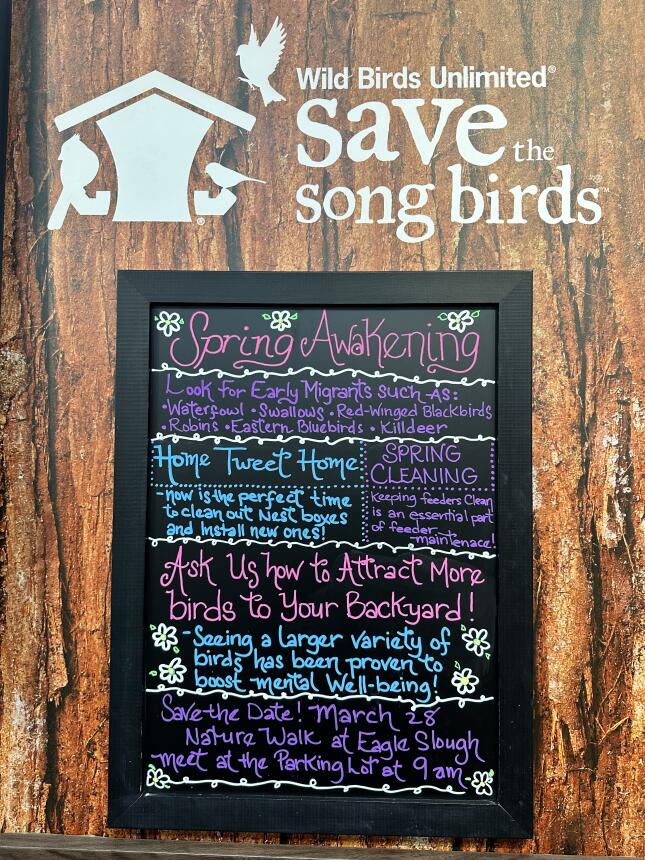 Wild Birds Unlimited®
save the
song birds™
®
Spring Awakening
Look for Early Migrants such As:
•Waterfowl •Swallows •Red-Winged Blackbirds
•Robins •Eastern Bluebirds •Killdeer
Home Tweet Home
-now is the perfect time
to clean out Nest boxes
and Install new ones!
SPRING
CLEANING
Keeping feeders Clean
is an essential part
of feeder
maintenace!
Ask Us how to Attract More
birds to Your Backyard!
-Seeing a larger variety of
birds has been proven to
boost mental Well-being!
Save the Date! March 28
Nature Walk at Eagle Slough
meet at the Parking Lot at 9 am